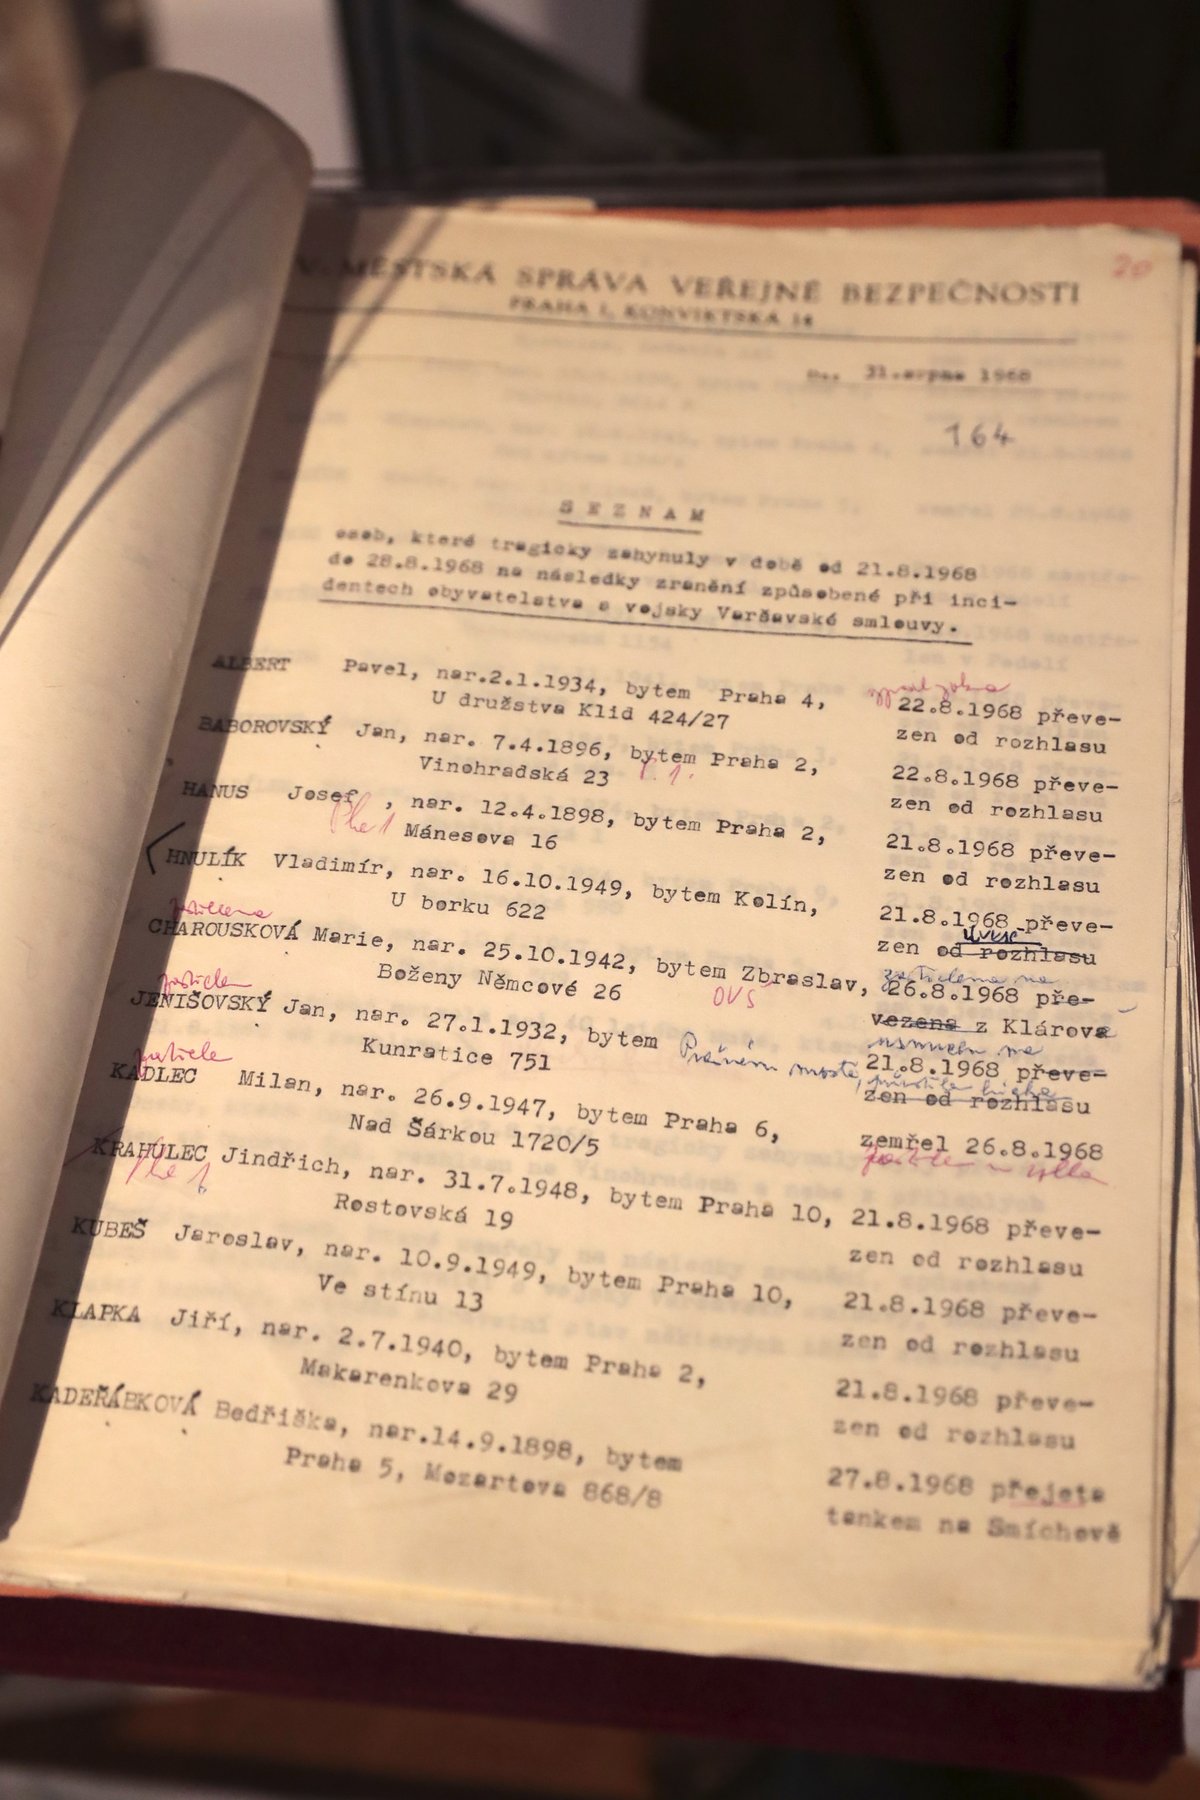 MĚSTSKÁ SPRÁVA VEŘEJNÉ BEZPEČNOSTI
PRAHA 1, KONVIKTSKÁ 14
20
31.srpna 1968
164
SEZNAM
osob, které tragicky zahynuly v době od 21.8.1968
do 28.8.1968 na následky zranění způsobené při inci-
dentech obyvatelstva s vojsky Varšavské smlouvy.
ALBERT Pavel, nar.2.1.1934, bytem Praha 4, 22.8.1968 převe-
U družstva Klid 424/27 zen od rozhlasu
BABOROVSKÝ Jan, nar. 7.4.1896, bytem Praha 2, 22.8.1968 převe-
Vinohradská 23 zen od rozhlasu
HANUS Josef, nar. 12.4.1898, bytem Praha 2, 21.8.1968 převe-
Mánesova 16 zen od rozhlasu
HNULÍK Vladimír, nar. 16.10.1949, bytem Kolín, 21.8.1968 převe-
U borku 622 zen od rozhlasu
zastřelena
CHAROUSKOVÁ Marie, nar. 25.10.1942, bytem Zbraslav, 26.8.1968 pře-
Boženy Němcové 26 vezena z Klárova
OVS
JENIŠOVSKÝ Jan, nar. 27.1.1932, bytem 21.8.1968 převe-
Kunratice 751 zen od rozhlasu
KADLEC Milan, nar. 26.9.1947, bytem Praha 6, zemřel 26.8.1968
Nad Šárkou 1720/5
KRAHULEC Jindřich, nar. 31.7.1948, bytem Praha 10, 21.8.1968 převe-
Rostovská 19 zen od rozhlasu
KUBEŠ Jaroslav, nar. 10.9.1949, bytem Praha 10, 21.8.1968 převe-
Ve stínu 13 zen od rozhlasu
KLAPKA Jiří, nar. 2.7.1940, bytem Praha 2, 21.8.1968 převe-
Makarenkova 29 zen od rozhlasu
KADEŘÁBKOVÁ Bedřiška, nar.14.9.1898, bytem 27.8.1968 přejeta
Praha 5, Mozartova 868/8 tankem na Smíchově